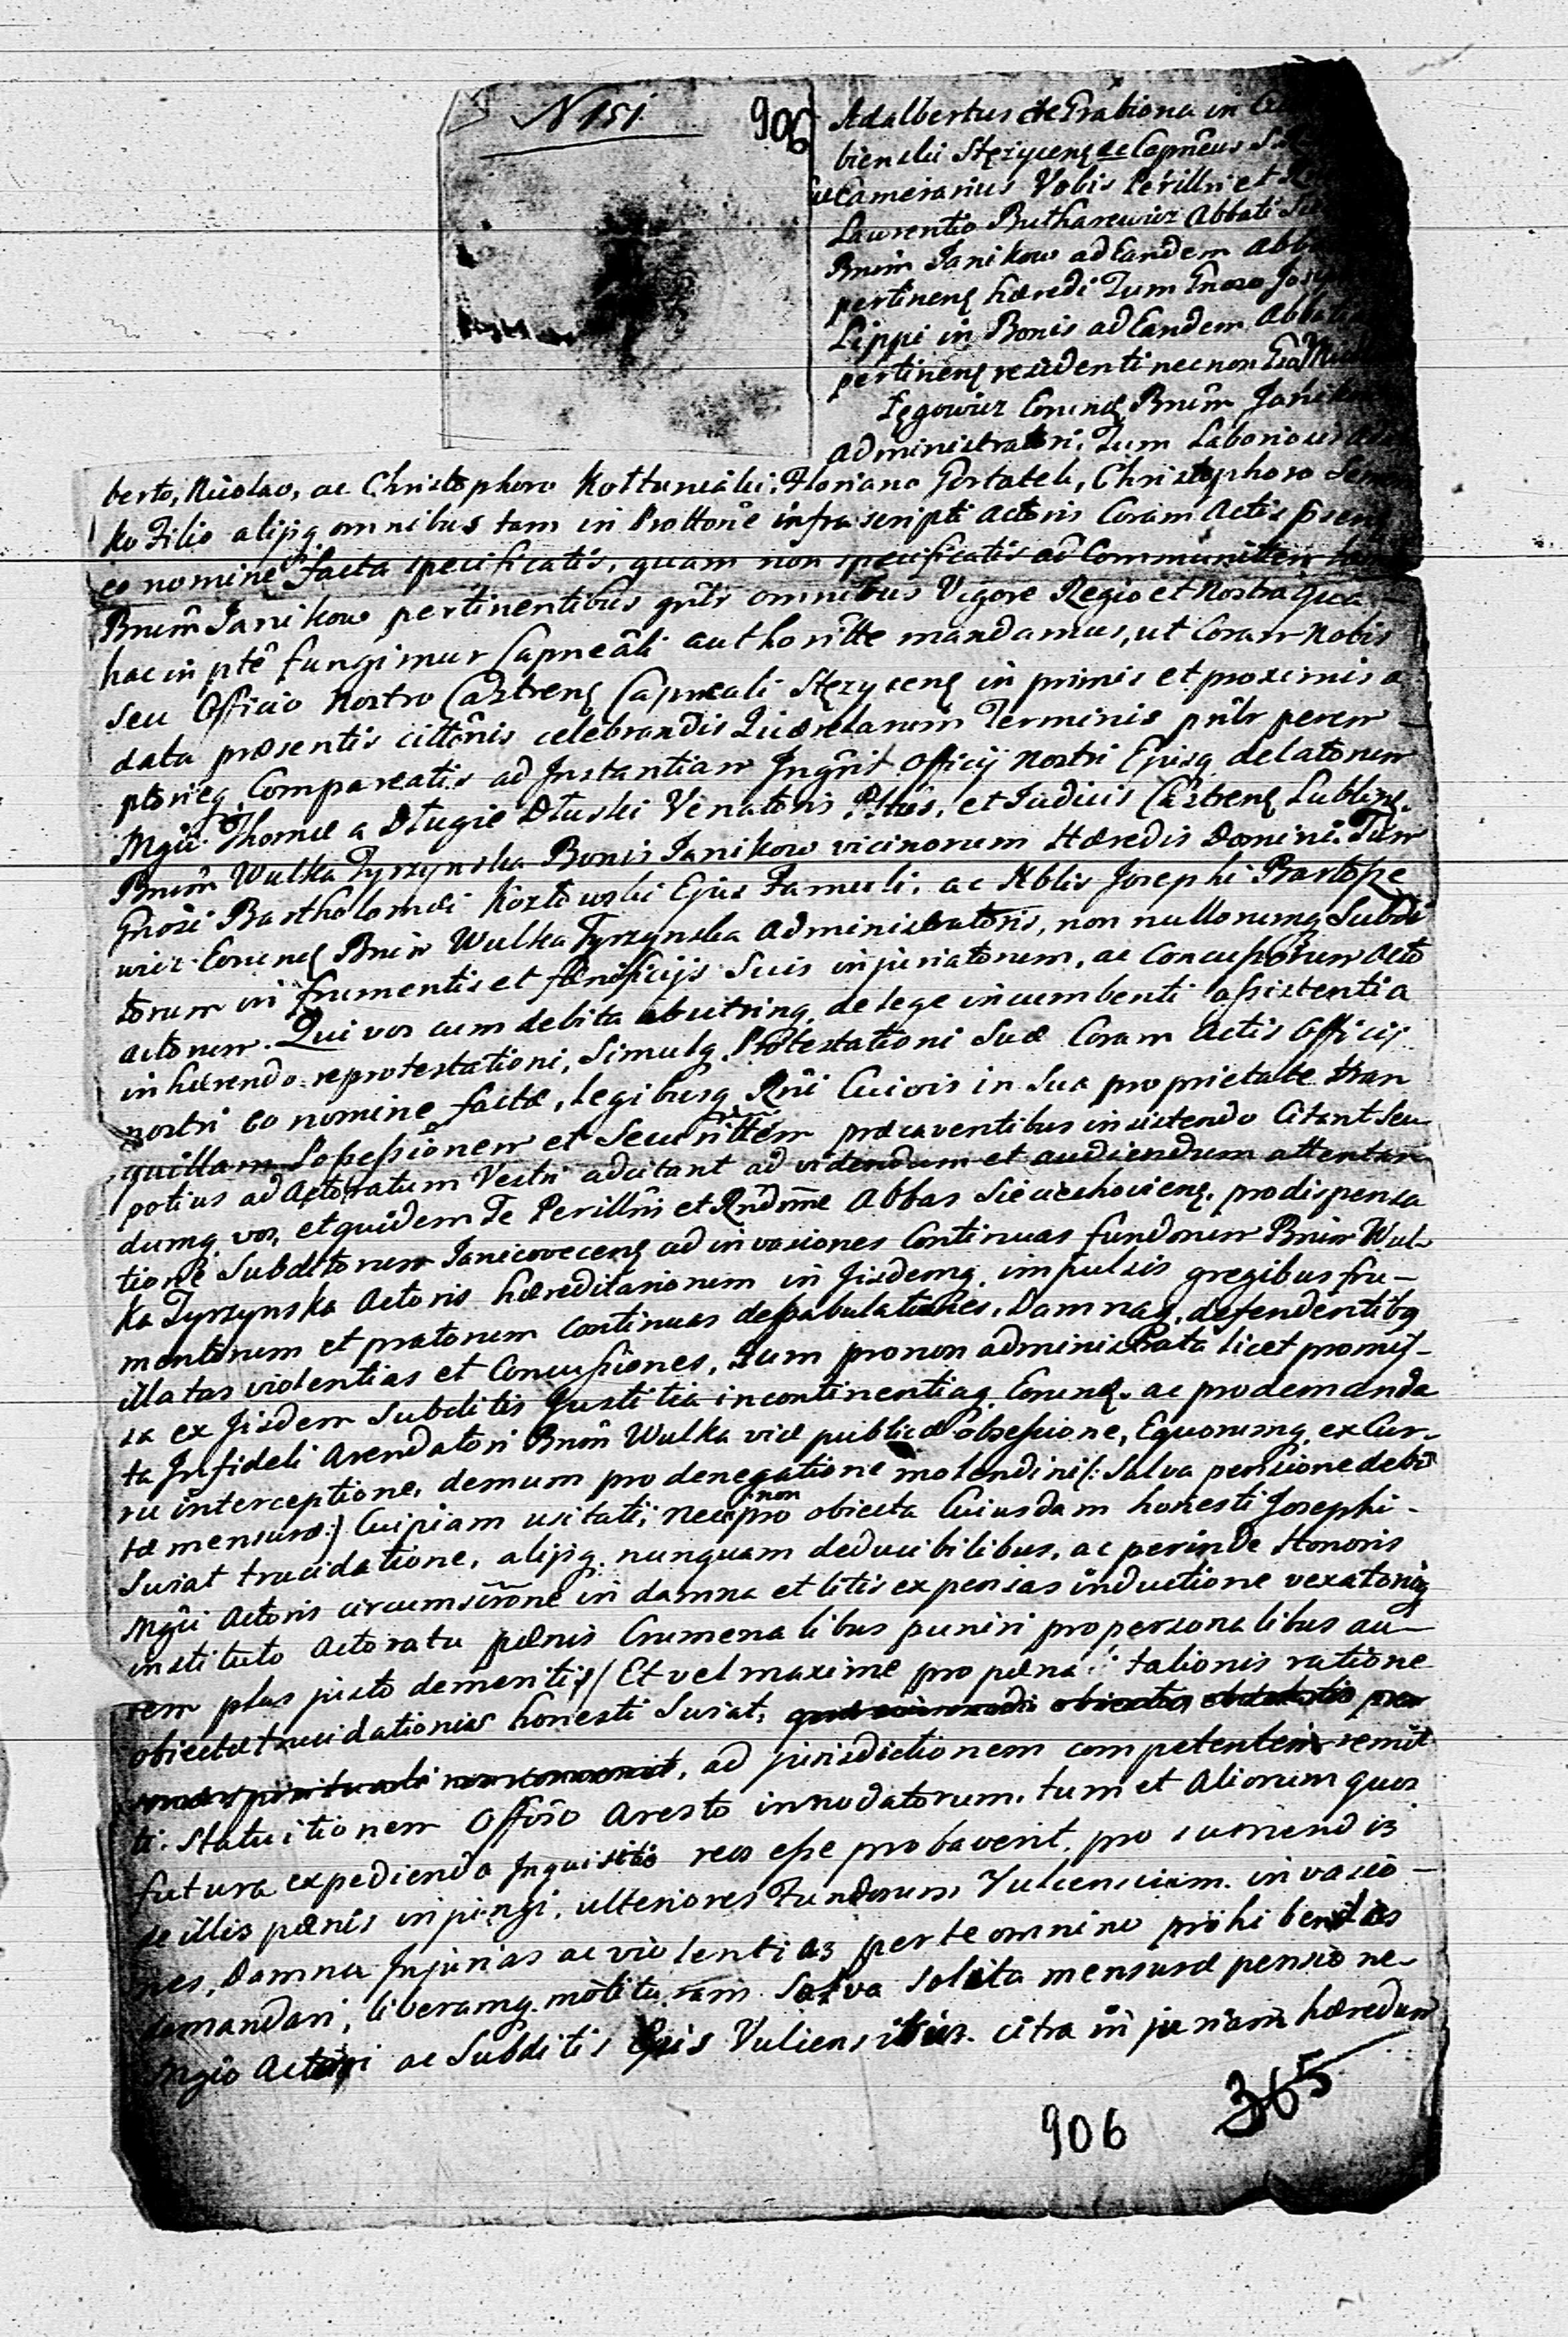 N 151
906
Adalbertus de Grabiona in
bienski Stęzycenʒ ac Capnêus
Camerarius Vobis Perillri et
Laurentio Butharewicz Abbati
Bnum Janikow ad Eandem
pertinenʒ hæredi Tum Gnoso
Lippi in Bonis ad Eandem
pertinenʒ residenti nec non
Łęgowicz Eorundʒ Bnum
Administratori, Tum Laboriosis
berto, Nicolao, ac Christophoro Kołtunski, Floriano Gortatek, Christophoro
ko Filio alijsqʒ omnibus tam in Prottone infrascripti Actoris Coram Actis psenʒ
eo nomine facta specificatis, quam non specificatis ad Communittem
Bnum Janikow pertinentibus gnlr omnibus Vigore Regio et Nostra qua
hac in pte fungimur Capneali authoritte mandamus, ut Coram Nobis
seu Officio Nostro Castrenʒ Capneali Stęzycenʒ in primis et proximis a
data præsentis cittonis celebrandis Quærelarum Terminis pnlr perem-
ptorieqʒ Compareatis ad Instantiam Ingnit Officij Nostri Ejusqʒ delatorum
Mgci Thomæ a Dlugie Dłuski Venatoris Pttus, et Judicis Castrenʒ Lublinʒ.
Bnum Wulka Tyrzynska Bonis Janikow vicinorum Hæredis Domini. Tum
Gnosi Bartholomæi Kozłowski Ejus Famuli, ac Nblis Josephi Bartosze
wicz Eorundʒ Bnum Wulka Tyrzynska Administratoris, non nullorumqʒ Subdi
torum in frumentis et fænisicijs suis injuriatorum, ac Concussorum Acto
Actorum. Qui vos cum debita ab utrinqʒ de lege incumbenti assistentia
inhærendo reprotestationi, Simulqʒ Protestationi Suæ Coram Actis Officij
nostri eo nomine factæ, legibusqʒ Rni Cuivis in Sua proprietate tran
quillam Possessionem et Securittem præcaventibus insistendo Citant seu
potius ad Actoratum Vestri adcitant ad videndum et audiendum attentan
dumqʒ vos, et quidem Te Perillris et Rndme Abbas Sieciechoviensʒ pro dispensa
tione Subditorum Janicovecenʒ ad invasiones Continuas fundorum Bnum Wul-
ka Tyrzynska Actoris hæreditariorum in Jisdemqʒ impulsis gregibus fru-
mentorum et pratorum Continuas depabulationes, Damnaqʒ, defendentibqʒ
illatas violentias et Concussiones, Tum pro non administrata licet promis-
sa ex Jisdem Subditis Justitia incontinentiaqʒ Eorundʒ. ac pro demanda
ta Infideli Arendatori Bnum Wulka viæ publicæ obsessione, Equorumqʒ ex Cur-
ru interceptione, demum pro denegatione molendini /: salva pensione debi
tæ mensuræ :/ Cuipiam usitati, nec pro non obiecta Cuiusdam honesti Josephi
Suriat trucidatione, alijsqʒ nunquam deducibilibus, ac perinde Honoris
Mgci Actoris circumsrione in damna et litis expensas inductione vexatorieqʒ
instituto Actoratu pænis Crumenalibus puniri pro personalibus au-
tem plus justo dementis / Et vel maxime pro pæna talionis ratione
obiectæ trucidationis honesti Suriat,
, ad jurisdictionem competentem remit
ti. Statuitionem Offoso Aresto innodatorum. tum et Aliorum quos
futura expedienda Inquisitio reos esse probaverit, pro sumendis
de illis pænis inpingi, ulteriores Fundorum Vulcensium invasio-
nes, Damna Injurias ac violentias per te omnino prohibendas
demandari, liberamqʒ molituram salva solita mensuræ pensione
Mgco Actori ac Subditis Ejus Vuliensibus citra injuriam hæredum
906
365